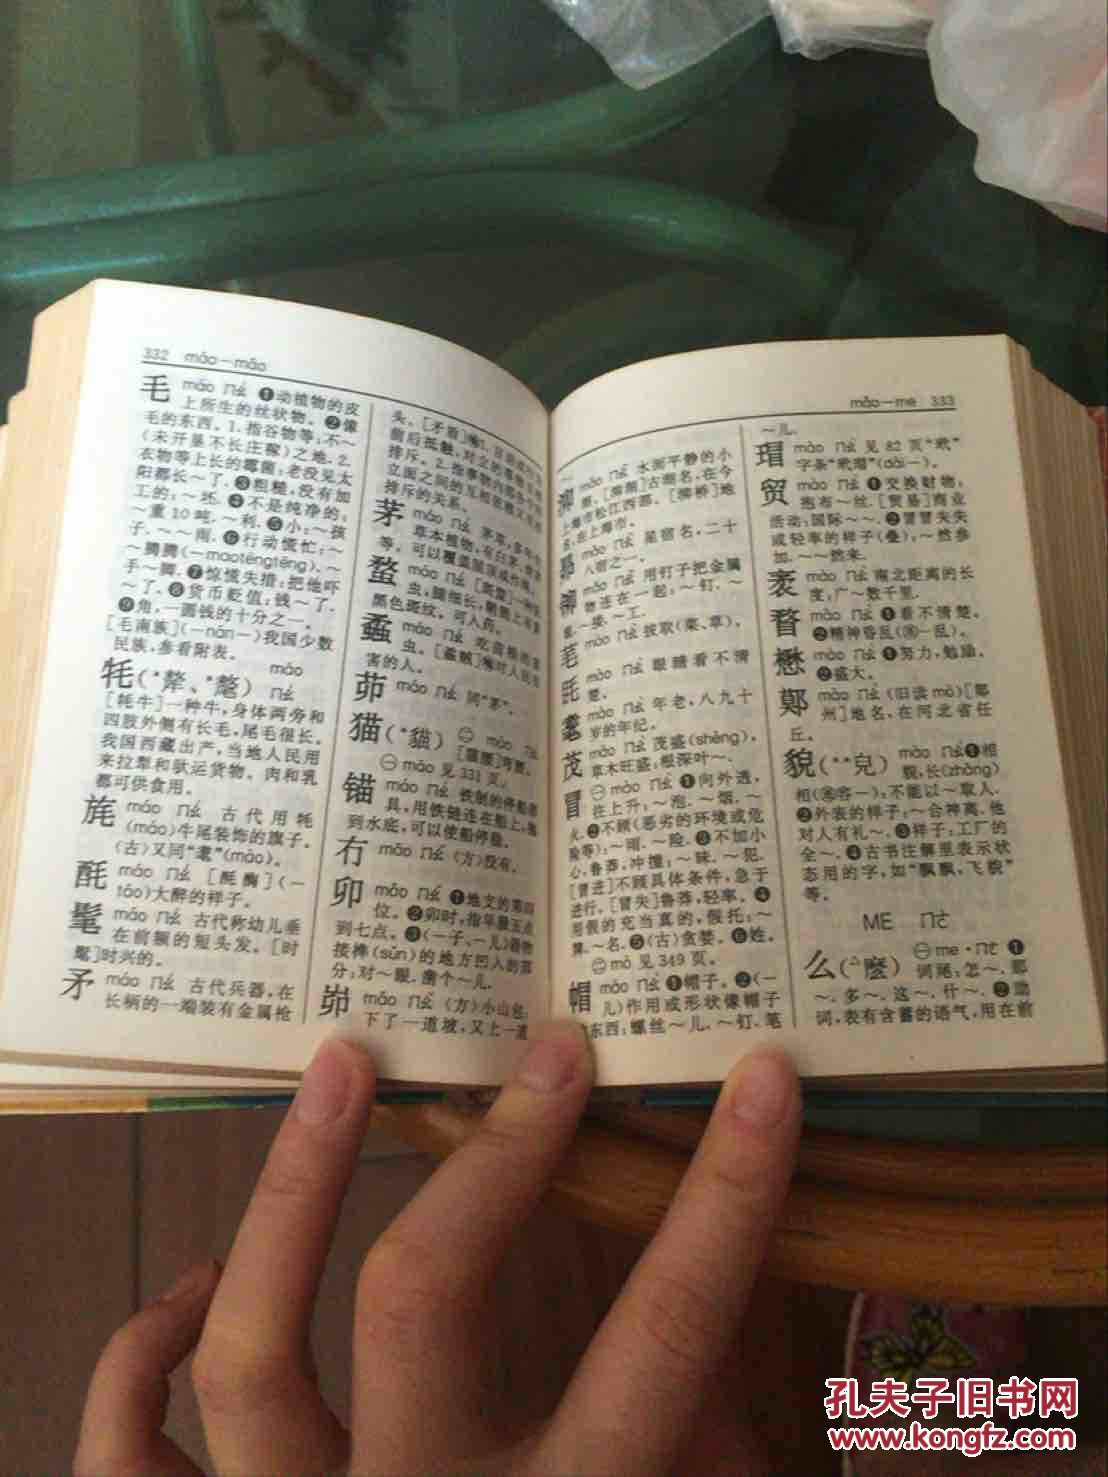 332 máo—mǎo
毛 máo ㄇㄠˊ ❶动植物的皮
上所生的丝状物。❷像
毛的东西。1.指谷物等:不~
(未开垦不长庄稼)之地。2.
衣物等上长的霉菌:老没见太
阳都长~了。❸粗糙,没有加
工的:~坯。❹不是纯净的:
~重10吨。~利。❺小:~孩
子。~~雨。❻行动慌忙:~
~腾腾(—maotēngtēng)。~
手~脚。❼惊慌失措:把他吓
~了。❽货币贬值:钱~了。
❾角,一圆钱的十分之一。
[毛南族](—nán—)我国少数
民族,参看附表。
牦(*犛、*氂) máo
ㄇㄠˊ
[牦牛]一种牛,身体两旁和
四肢外侧有长毛,尾毛很长。
我国西藏出产,当地人民用
来拉犁和驮运货物。肉和乳
都可供食用。
旄 máo ㄇㄠˊ 古代用牦
(máo)牛尾装饰的旗子。
〈古〉又同“耄”(mào)。
酕 máo ㄇㄠˊ [酕醄](—
táo)大醉的样子。
髦 máo ㄇㄠˊ 古代称幼儿垂
在前额的短头发。[时
髦]时兴的。
矛 máo ㄇㄠˊ 古代兵器,在
长柄的一端装有金属枪
头。[矛盾]
前后抵触,对立的事物互相
排斥。2.指事物内部各个对
立面之间的互相依赖又互相
排斥的关系。
茅 máo ㄇㄠˊ 茅草,多年生
草本植物,有白茅、青茅
等。可以覆盖屋顶或作绳。
蝥 máo ㄇㄠˊ [斑蝥]一种昆
虫,腿细长,鞘翅上有黄
黑色斑纹。可入药。
蟊 máo ㄇㄠˊ 吃苗根的害
虫。[蟊贼]喻对人民有
害的人。
茆 máo ㄇㄠˊ 同“茅”。
猫(*貓) ㊁ máo ㄇㄠˊ
[猫腰]弯腰。
㊀ māo 见331页。
锚 máo ㄇㄠˊ 铁制的停船器
具,用铁链连在船上,抛
到水底,可以使船停稳。
冇 mǎo ㄇㄠˇ 〈方〉没有。
卯 mǎo ㄇㄠˇ ❶地支的第四
位。❷卯时,指早晨五点
到七点。❸(—子、—儿)器物
接榫(sǔn)的地方凹入的部
分:对~眼。凿个~儿。
峁 mǎo ㄇㄠˇ 〈方〉小山包:
下了一道坡,又上一道
mǎo—me 333
泖 mǎo ㄇㄠˇ 水面平静的小
湖。[泖湖]古湖名,在今
上海市松江西部。[泖桥]地
名,在上海市。
昴 mǎo ㄇㄠˇ 星宿名,二十
八宿之一。
铆 mǎo ㄇㄠˇ 用钉子把金属
物连在一起:~钉。~
眼。~接。~工。
芼 mào ㄇㄠˋ 拔取(菜、草)。
眊 mào ㄇㄠˋ 眼睛看不清
楚。
耄 mào ㄇㄠˋ 年老,八九十
岁的年纪。
茂 mào ㄇㄠˋ 茂盛(shèng),
草木旺盛:根深叶~。
冒 ㊀ mào ㄇㄠˋ ❶向外透,
往上升:~泡。~烟。~
火。❷不顾(恶劣的环境或危
险等):~雨。~险。❸不加小
心,鲁莽,冲撞:~昧。~犯。
[冒进]不顾具体条件,急于
进行。[冒失]鲁莽,轻率。❹
用假的充当真的,假托:~
牌。~名。❺〈古〉贪婪。❻姓。
㊁ mò 见349页。
帽 mào ㄇㄠˋ ❶帽子。❷(—
儿)作用或形状像帽子
的东西:螺丝~儿。~钉。笔
~儿。
瑁 mào ㄇㄠˋ 见82页“玳”
字条“玳瑁”(dài—)。
贸 mào ㄇㄠˋ ❶交换财物:
抱布~丝。[贸易]商业
活动:国际~~。❷冒冒失失
或轻率的样子(叠):~然参
加。~~然来。
袤 mào ㄇㄠˋ 南北距离的长
度:广~数千里。
瞀 mào ㄇㄠˋ ❶看不清楚。
❷精神昏乱(㊣—乱)。
懋 mào ㄇㄠˋ ❶努力,勉励。
❷盛大。
鄚 mào ㄇㄠˋ (旧读mò)[鄚
州]地名,在河北省任
丘。
貌(**皃) mào ㄇㄠˋ ❶相
貌,长(zhǎng)
相(㊣容—):不能以~取人。
❷外表的样子:~合神离。他
对人有礼~。❸样子:工厂的
全~。❹古书注解里表示状
态用的字,如“飘飘,飞貌”
等。
ME ㄇㄜ
么(△麽) ㊀ me ·ㄇㄜ ❶
词尾:怎~。那
~。多~。这~。什~。❷助
词,表有含蓄的语气,用在前
孔夫子旧书网
www.kongfz.com